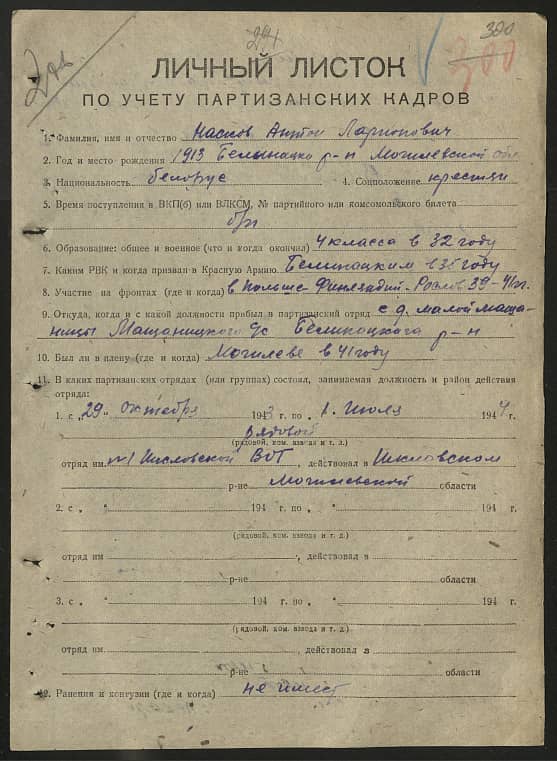 271
300
300
ЛИЧНЫЙ ЛИСТОК
ПО УЧЕТУ ПАРТИЗАНСКИХ КАДРОВ
1. Фамилия, имя и отчество Касков Антон Ларионович
2. Год и место рождения 1913 Белыницко р-н Могилевской обл
3. Национальность белорус 4. Соцположение крестян
5. Время поступления в ВКП(б) или ВЛКСМ, № партийного или комсомольского билета
б/п
6. Образование: общее и военное (что и когда окончил) 4 класса в 32 году
7. Каким РВК и когда призван в Красную Армию Белиницким в 35 году
8. Участие на фронтах (где и когда) в Польше 39-41 гг.
9. Откуда, когда и с какой должности прибыл в партизанский отряд с д. малой маща-
ницы Мащаницкого с/с Белиноцкага р-н
10. Был ли в плену (где и когда) Могилеве в 41 году
11. В каких партизанских отрядах (или группах) состоял, занимаемая должность и район действия
отряда:
1. с „29„ октября 1943 г. по „1. Июля 1944 г.
рядовой
(рядовой, ком. взвода и т. д.)
отряд им. №1 Шкловской ВОГ, действовал в Шкловском
р-не Могилевской области
2. с „ „ 194 г. по „ „ 194 г.
(рядовой, ком. взвода и т. д.)
отряд им , действовал в
р-не области
3. с „ „ 194 г. по „ „ 194 г.
(рядовой, ком. взвода и т. д.)
отряд им , действовал в
р-не области
12. Ранения и контузии (где и когда) не имеет